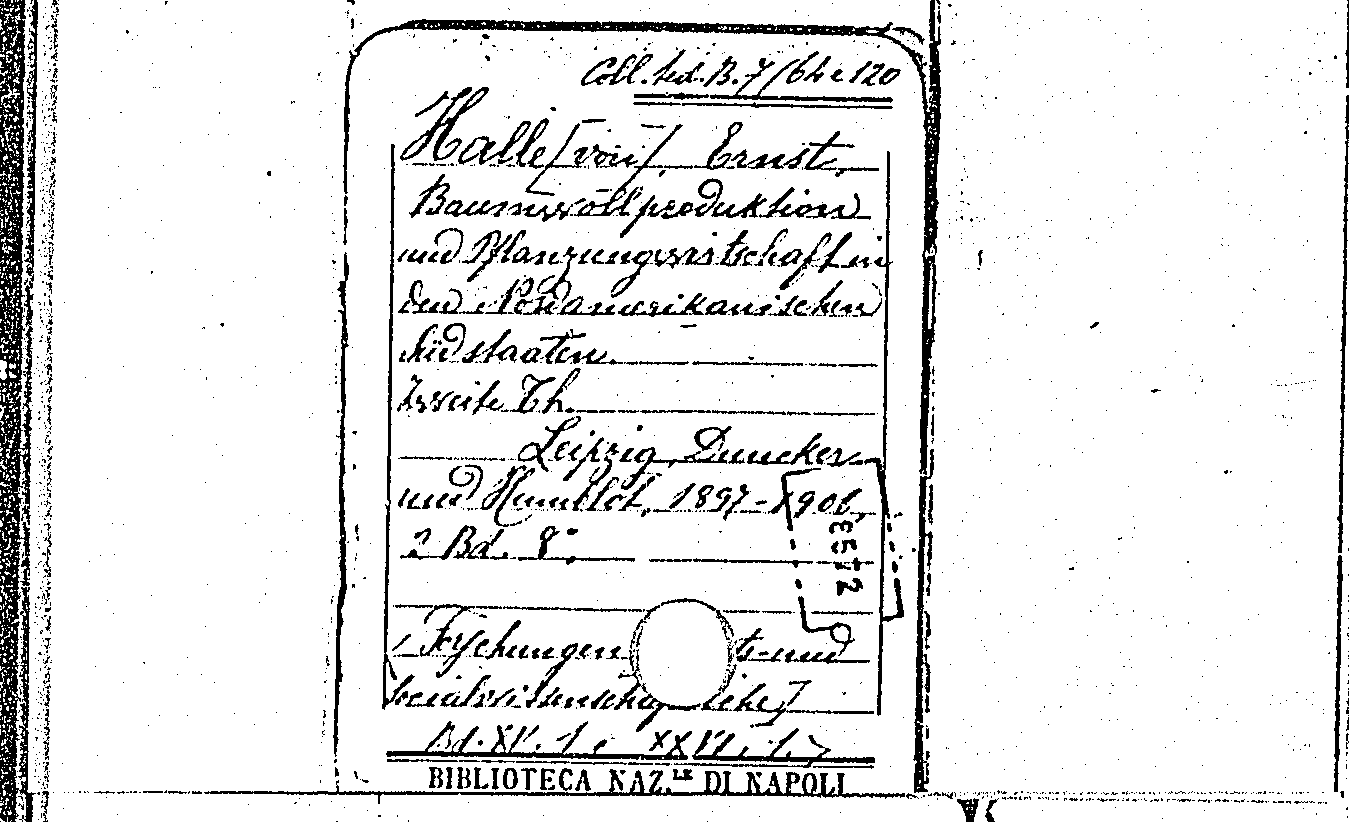 Coll. ted. B. 7 (64 e 120
Halle [von], Ernst,
Baumwollproduktion
und Pflanzungswirtschaft in
den Nordamerikanischen
Südstaaten.
Zweite Th.
Leipzig, Duncker
und Humblot, 1897-1906,
2 Bd. 8°.
3572
Forschungen ts-und
Bd. XV. 1 e XXVI. 1.
BIBLIOTECA NAZ.LE DI NAPOLI